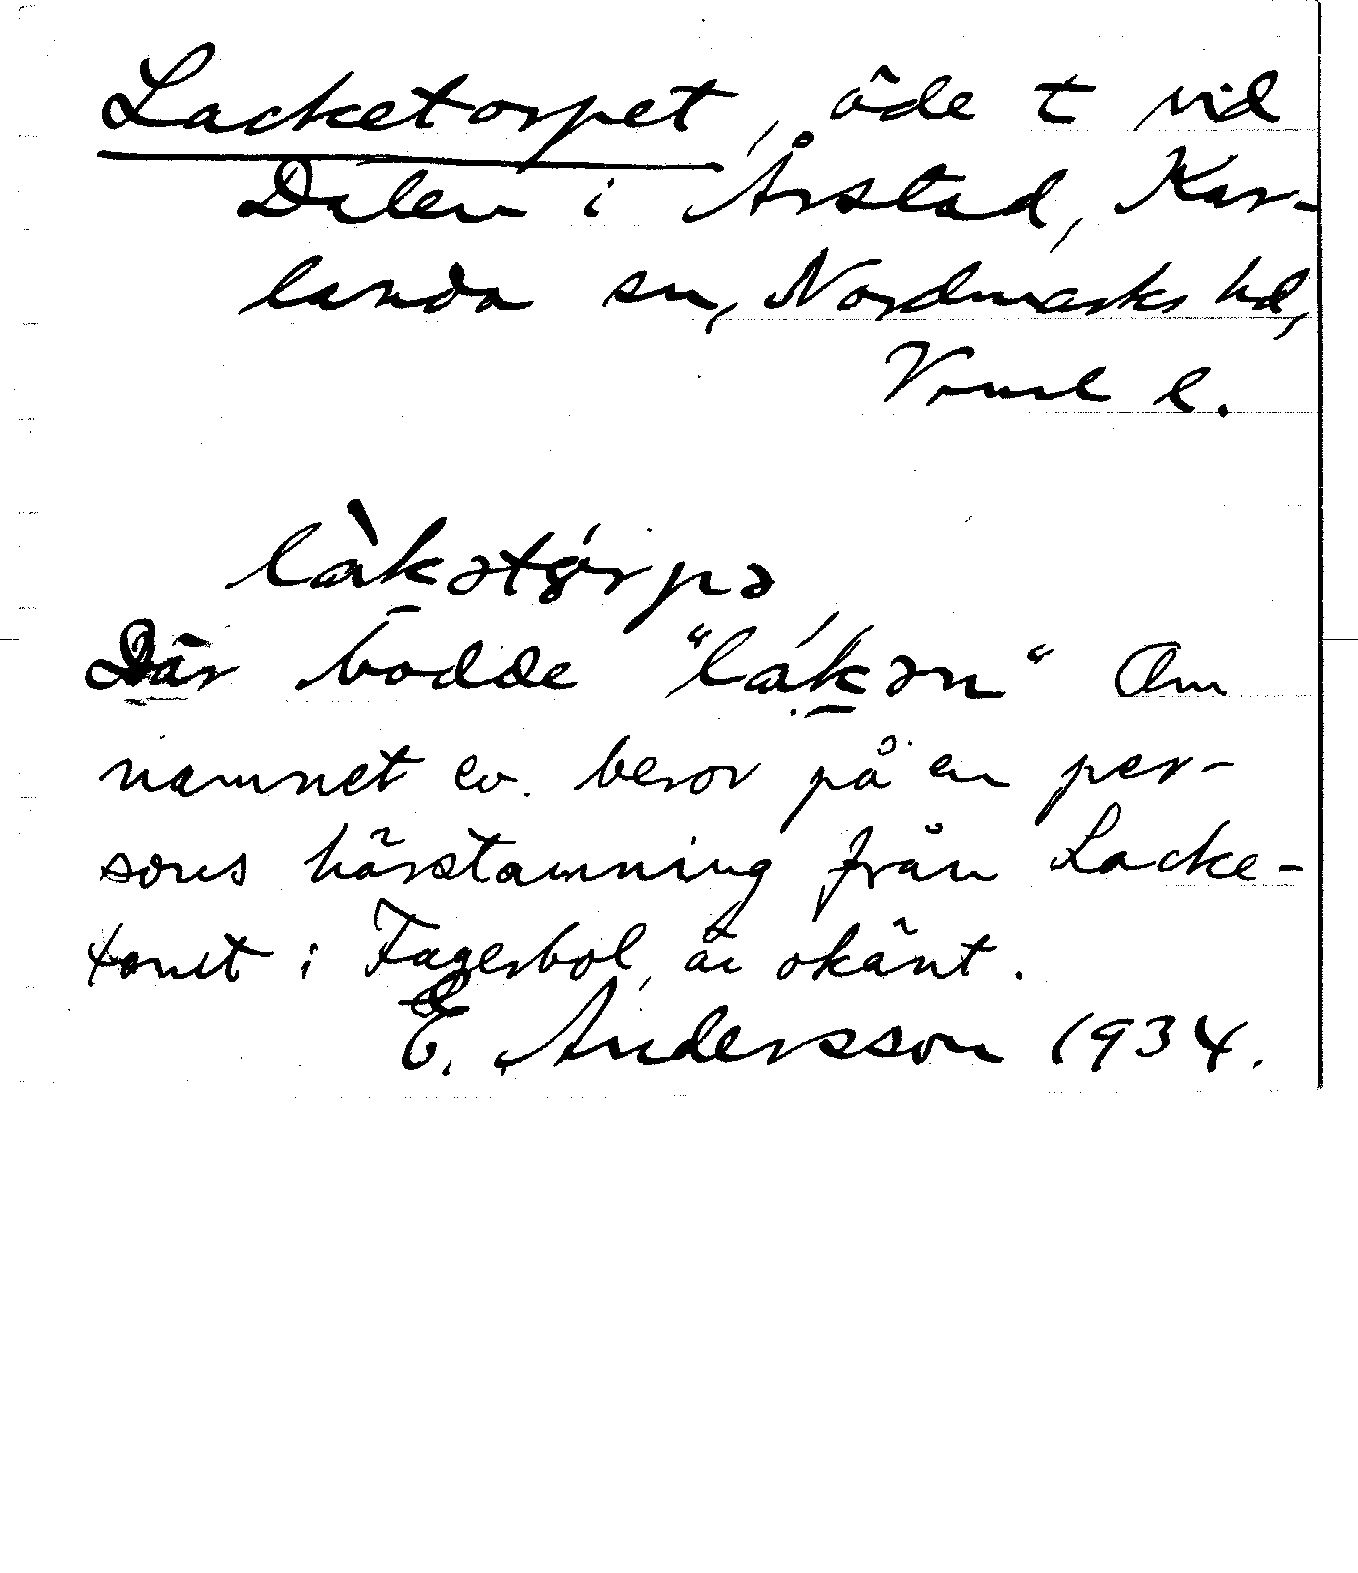 Lacketorpet, öde t vid
Dalen i Årstad, Kar-
landa sn, Nordmarks hd,
Vrml l.
làkətǫ́rpə
Där bodde "lákən" Om
namnet ev. beror på en per-
sons härstamning från Lacke-
tomt i Fagerbol, är okänt.
E. Andersson 1934.